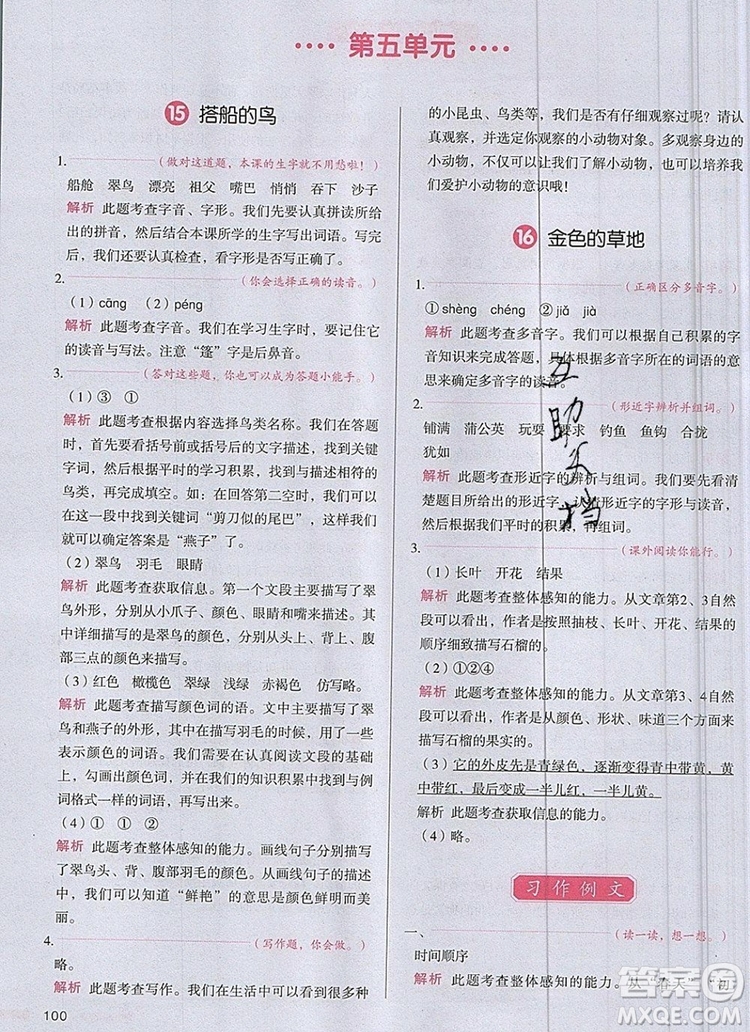 第五单元
15 搭船的鸟
1.（做对这道题，本课的生字就不用愁啦！）
船舱 翠鸟 漂亮 祖父 嘴巴 悄悄 吞下 沙子
解析 此题考查字音、字形。我们要认真拼读所给
出的拼音，然后结合本课所学的生字写出词语。写完
后，我们还要认真检查，看字形是否写正确了。
2.（你会选择正确的读音。）
（1）cāng （2）péng
解析 此题考查字音。我们在学习生字时，要记住它
的读音与写法。注意“篷”字是后鼻音。
3.（答对这些题，你也可以成为答题小能手。）
（1）③ ①
解析 此题考查根据内容选择鸟类名称。我们在答题
时，首先要看括号前或括号后的文字描述，找到关键
字词，然后根据平时的学习积累，找出与描述相符的
鸟类，再填空。如：在回答第二空时，我们可以从描
述中找出关键词“剪刀似的尾巴”，这样我们就可以
确定答案是“燕子”了。
（2）翠鸟 羽毛 眼睛
解析 此题考查获取信息。第一个文段主要描写了翠
鸟外形，分别从小爪子、颜色、眼睛和嘴来描述。其
中详细描写了颜色，颜色部分分别从头上、背上、腹
部三处的颜色来描写。
（3）红色 橄榄色 翠绿 浅绿 赤褐色 仿写略。
解析 此题考查描写颜色的词语。从两个文段所描写
的翠鸟和燕子的外形，其中描写羽毛的时候，用了一
些关于颜色的词语。我们需要在认真阅读文段的基础
上，勾画出颜色词，并在我们的知识积累中找出与例
词格式一样的词语，写出来即可。
（4）① ① ②
解析 此题考查整体感知的能力。画线句子分别描写
了翠鸟头、背、腹部羽毛的颜色，从而突出翠鸟的美
丽。“鲜艳”的意思就是颜色非常鲜明而
美
丽。
4.（写作题，你会做。）
略。
解析 此题考查写作。我们在生活中可以看到很多种
100
的小昆虫、鸟类等，我们是否有仔细观察过呢？请认
真观察，并选定你要写的小动物对象。多观察身边的
小动物，不仅能提升我们的写作能力，也可以培养我
们爱护小动物的意识哦！
16 金色的草地
1.（正确区分多音字。）
①shèng chéng ②jiǎ jià
解析 此题考查多音字。我们可以根据自己积累的字
音知识来完成答题，具体根据多音字所在的词语的意
思来确定多音字的读音。
2.（形近字辨析并组词。）
铺满 蒲公英 玩耍 要求 钓鱼 鱼钩 合拢
犹如
解析 此题考查形近字的辨析与组词。我们要先看清
楚题目所给出的汉字，认真辨析形近字的字形与读音，
然后根据我们平时的积累，再组词。
3.（课外阅读你能行。）
（1）长叶 开花 结果
解析 此题考查整体感知的能力。从文章第2、3自
然段可以看出，作者是按照抽枝、长叶、开花、结果的
顺序细致描写石榴的。
（2）①②④
解析 此题考查整体感知的能力。从文章第3、4自
然段可以看出，作者是从颜色、形状、味道三个方面来
描写石榴的果实的。
（3）它的外皮先是青绿色，逐渐变得青中带黄，黄
中带红，最后变成一半儿红，一半儿黄。
解析 此题考查获取信息的能力。
（4）略。
习作例文
一、（读一读，想一想。）
时间顺序
解析 此题考查整体感知的能力。从“春天”“初
互助文档
答案圈
MXQE.COM